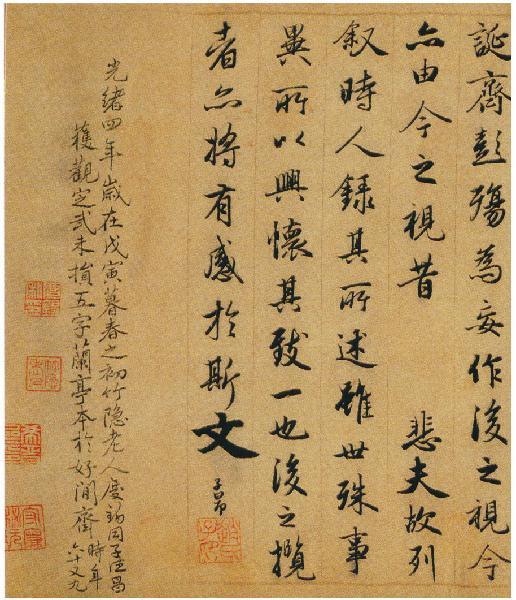 誕齊彭殤為妄作後之視今
亦由今之視昔 悲夫故列
叙時人錄其所述雖世殊事
異所以興懷其致一也後之攬
者亦將有感於斯文
子昂
光緒四年歲在戊寅暮春之初竹隱老人慶錫
獲觀定武未損五字蘭亭本於好閒齋時年六十又九